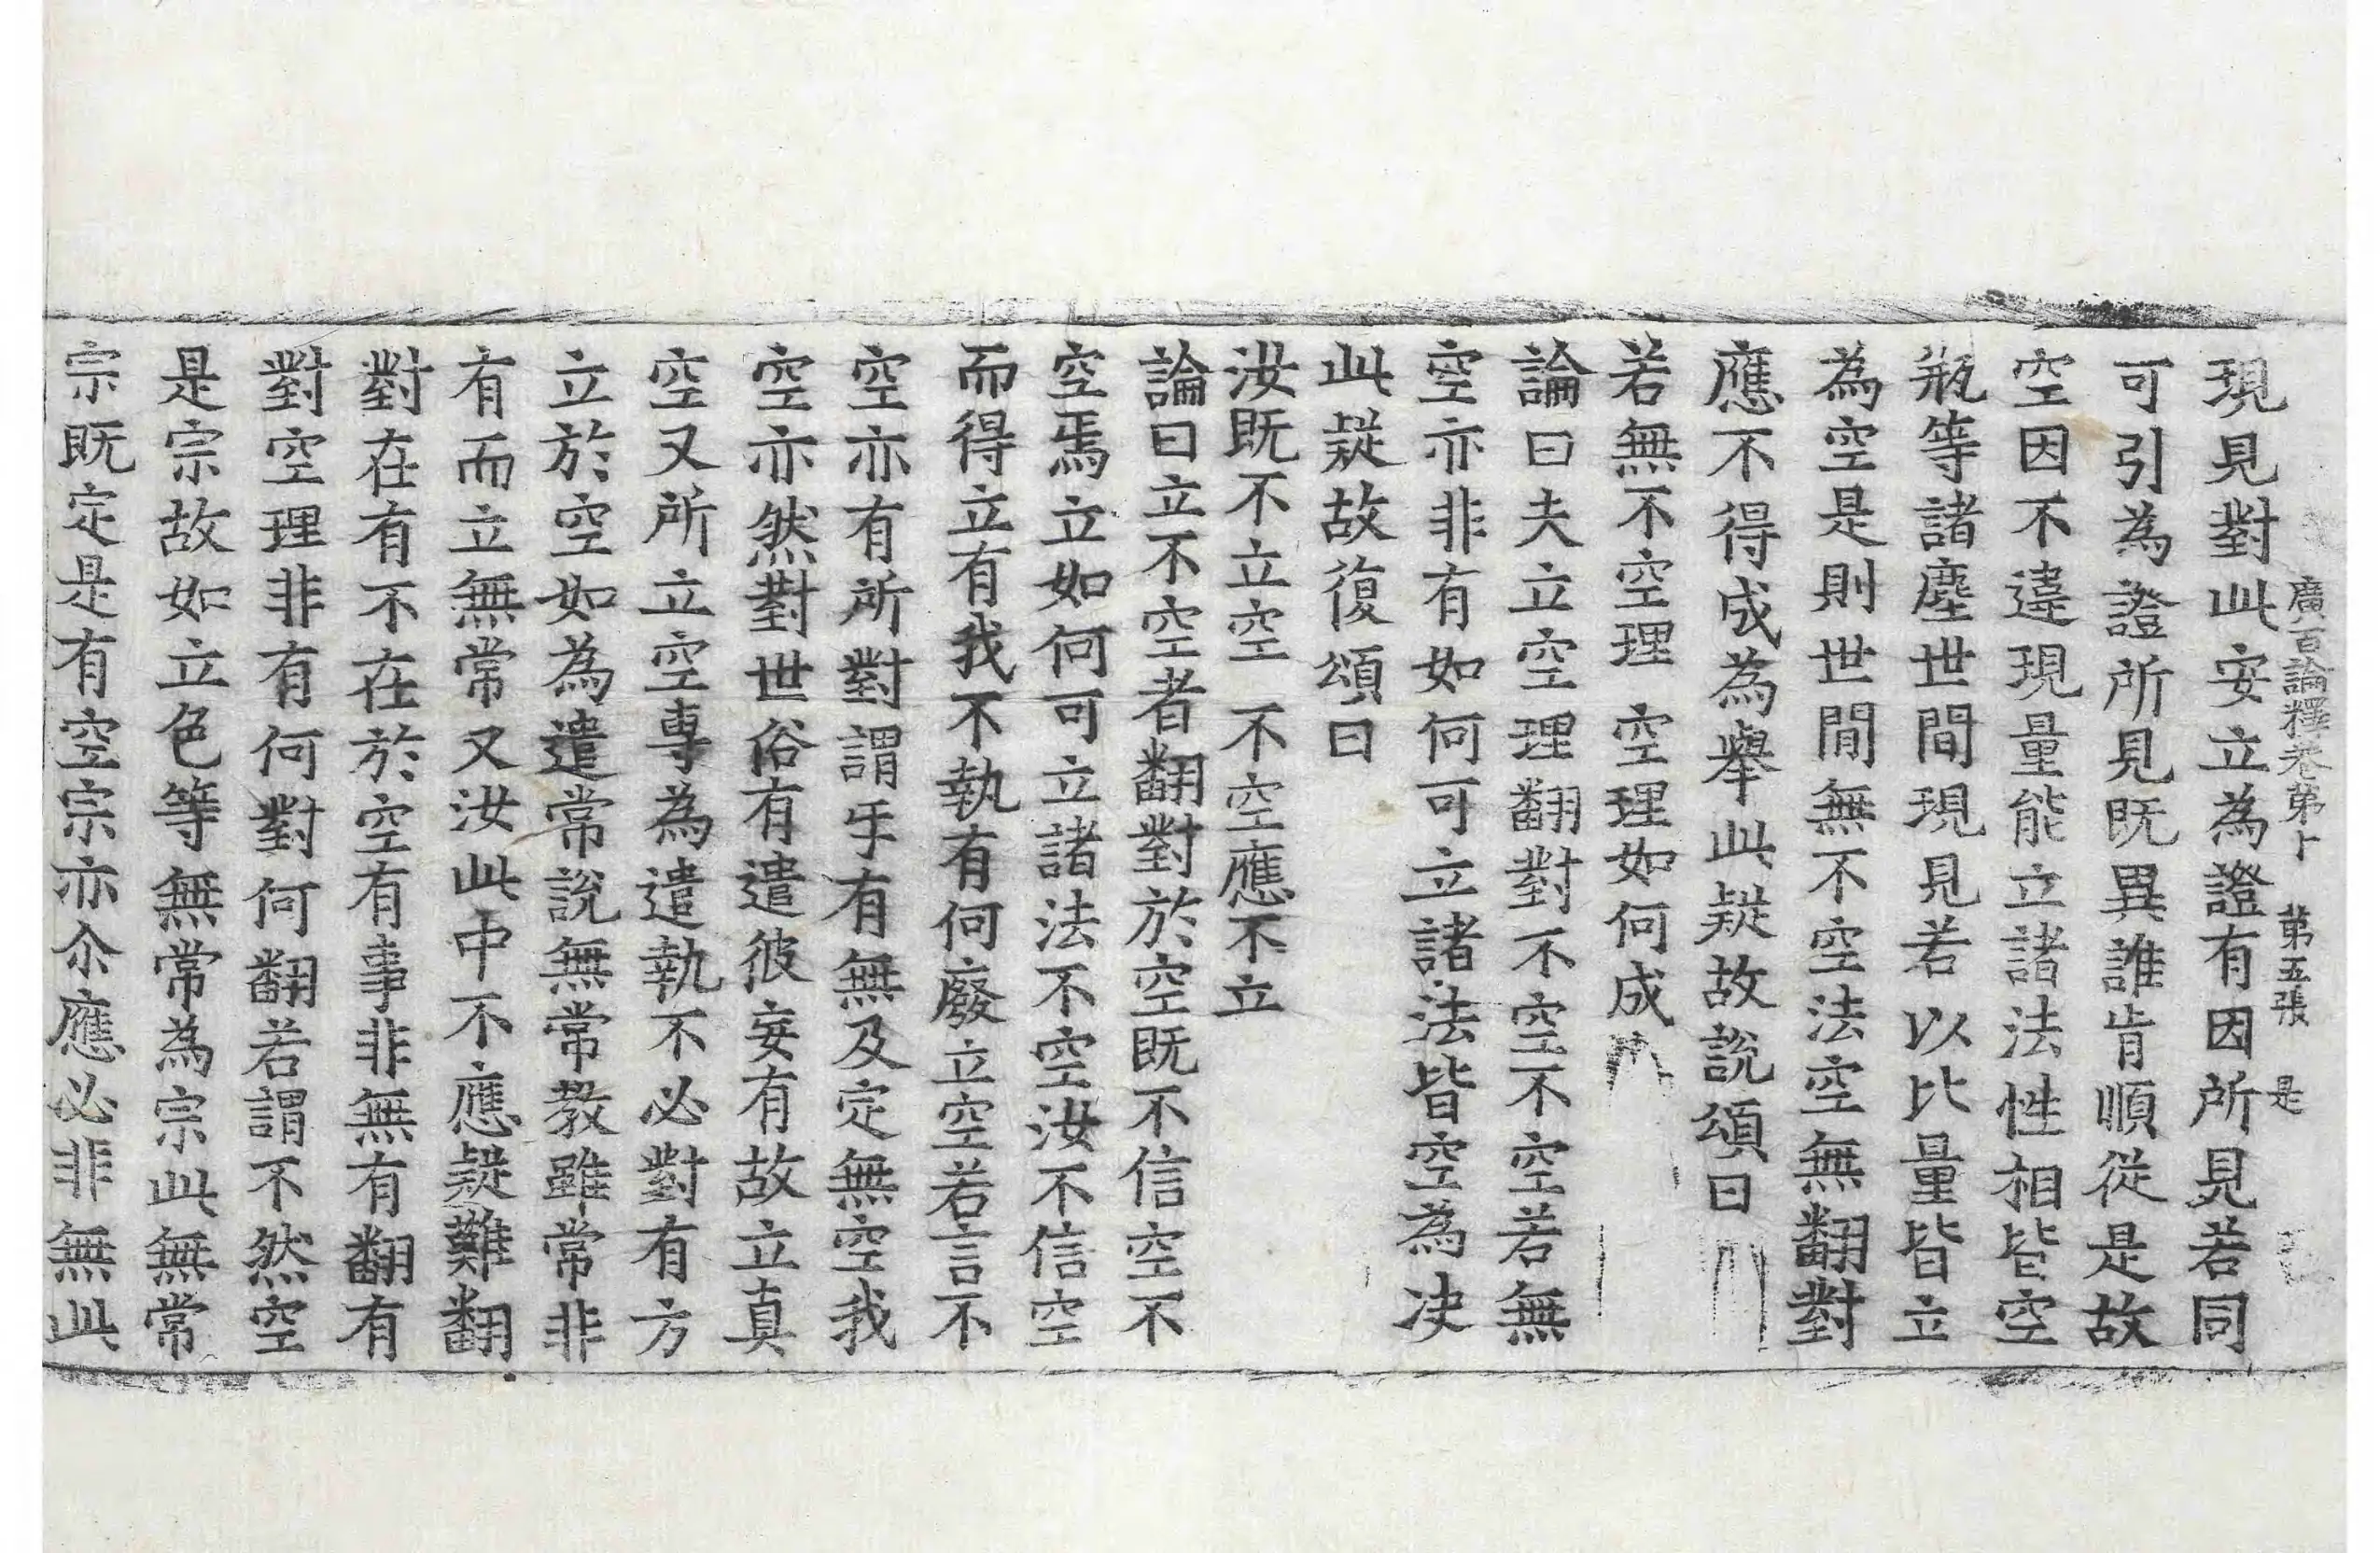 廣百論釋卷第十 第五張 是
現見對此安立為證有因所見若同
可引為證所見既異誰肯順從是故
空因不違現量能立諸法性相皆空
瓶等諸塵世間現見若以比量皆立
為空是則世間無不空法空無翻對
應不得成為舉此疑故說頌曰
若無不空理 空理如何成
論曰夫立空理翻對不空不空若無
空亦非有如何可立諸法皆空為决
此疑故復頌曰
汝既不立空 不空應不立
論曰立不空者翻對於空既不信空不
空焉立如何可立諸法不空汝不信空
而得立有我不執有何廢立空若言不
空亦有所對謂乎有無及定無空我
空亦然對世俗有遣彼妄有故立真
空又所立空專為遣執不必對有方
立於空如為遣常說無常教雖常非
有而立無常又汝此中不應疑難翻
對在有不在於空有事非無有翻有
對空理非有何對何翻若謂不然空
是宗故如立色等無常為宗此無常
宗既定是有空宗亦尒應必非無此